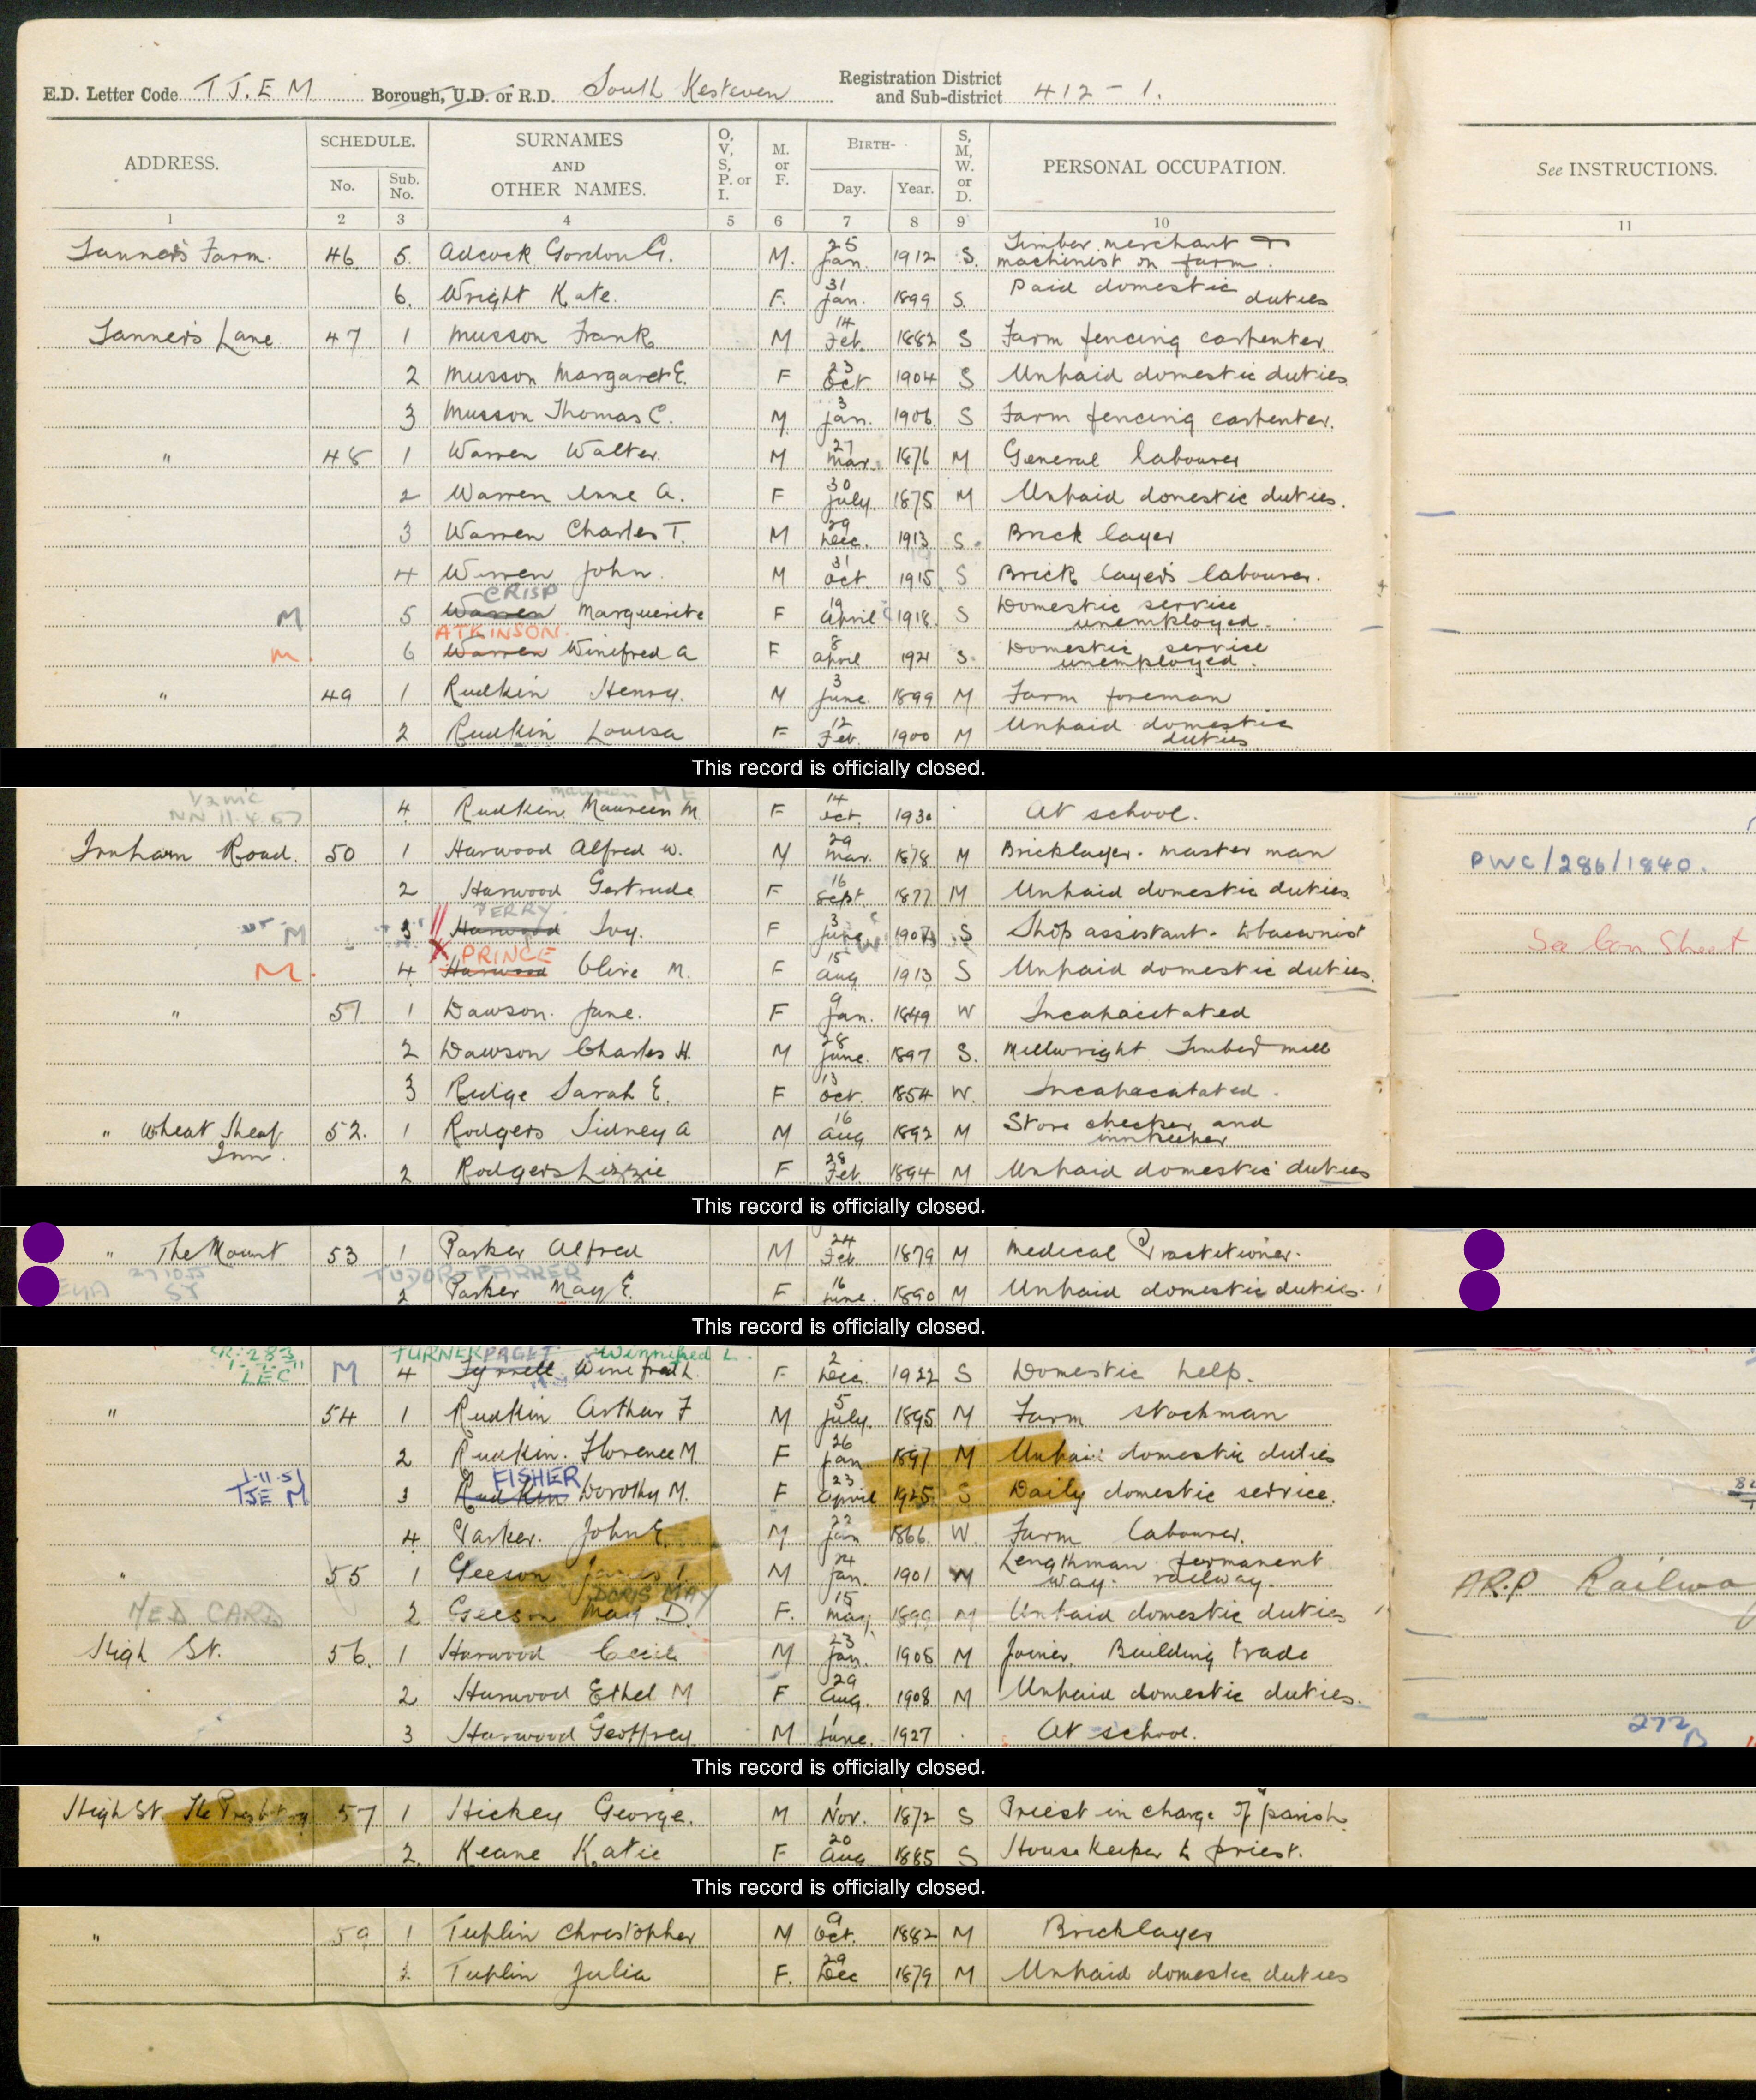 E.D. Letter Code T J. E M Borough, U.D. or R.D. South Kesteven Registration District and Sub-district 412 - 1.
ADDRESS. SCHEDULE. No. Sub. No. SURNAMES AND OTHER NAMES. O, V, S, P. or I. M. or F. BIRTH- Day. Year. S, M, W. or D. PERSONAL OCCUPATION. See INSTRUCTIONS.
1 2 3 4 5 6 7 8 9 10 11
Tanner's Farm. 46 5. Adcock Gordon G. M. 25 Jan. 1912 S. Timber merchant & machinist on farm.
6. Wright Kate. F. 31 Jan. 1899 S. Paid domestic duties
Tanner's Lane 47 1 Musson Frank M 14 Feb. 1882 S Farm fencing carpenter.
2 Musson Margaret E. F 23 Oct. 1904 S Unpaid domestic duties.
3 Musson Thomas C. M. 3 Jan. 1906 S Farm fencing carpenter.
" 48 1 Warren Walter. M 27 Mar. 1876 M General labourer
2 Warren Anne A. F 30 July. 1875 M Unpaid domestic duties.
3 Warren Charles T. M 29 Dec. 1913 S. Brick layer
4 Warren John. M 31 Oct 1915 S Brick layer's labourer.
CRISP
M 5 Warren Marguerite F 19 April 1918. S Domestic service unemployed.
ATKINSON.
M. 6 Warren Winifred A F 8 April 1921 S. Domestic service unemployed.
" 49 1 Rudkin Henry. M 3 June. 1899 M Farm foreman
2 Rudkin Louisa F 12 Feb. 1900 M Unpaid domestic duties
This record is officially closed.
Maureen M E
NN 11.4.57 4. Rudkin Maureen M. F 14 Oct. 1930 At school.
Irnham Road. 50 1 Harwood Alfred W. M 29 Mar. 1878 M Bricklayer. master man PWC/286/1840.
2 Harwood Gertrude F 16 Sept. 1877 M Unpaid domestic duties.
PERRY.
M 3 Harwood Ivy. F 3 June 1907 S Shop assistant. tobacconist
PRINCE
M. 4 Harwood Olive M. F 15 Aug 1913 S Unpaid domestic duties.
" 51 1 Dawson. Jane. F 9 Jan. 1849 W Incapacitated
2 Dawson Charles H. M 28 June. 1897 S. Millwright Timber mill
3 Ridge Sarah E. F 13 Oct. 1854 W. Incapacatated.
" Wheat Sheaf Inn. 52. 1 Rodgers Sidney A M 16 Aug 1892 M Store checker and innkeeper
2 Rodgers Lizzie F 28 Feb 1894 M Unpaid domestic duties
This record is officially closed.
" The Mount 53 1 Parker Alfred M 24 Feb. 1879 M Medical Practitioner.
27.10.55 TUDOR-PARKER
2 Parker May E. F 16 June. 1890 M Unpaid domestic duties.
This record is officially closed.
TURNER PAGET Winnifred L.
LEC M 4 Tyrrell Winifred L. F 2 Dec. 1922 S Domestic help.
" 54 1 Rudkin Arthur F M 5 July. 1895 M Farm stockman
2 Rudkin. Florence M. F 26 Jan 1897 M Unpaid domestic duties
1.11.51 FISHER
TJE M 3 Rudkin Dorothy M. F 23 April 1925 S Daily domestic service.
4 Parker. John E. M 22 Jan 1866. W. Farm labourer.
" 55 1 Geeson James T. M 24 Jan. 1901 M Lengthman permanent way. railway. A.R.P Railwa
DORIS MAY
MED CARD 2 Geeson May D. F. 15 May. 1899 M Unpaid domestic duties
High St. 56. 1 Harwood Cecil M 23 Jan. 1905 M Joiner. Building trade
2 Harwood Ethel M F 29 Aug. 1908 M Unpaid domestic duties.
3 Harwood Geoffrey M 1 June. 1927 At school. 272
This record is officially closed.
High St. The Presbytery 57 1 Hickey George. M 1 Nov. 1872 S Priest in charge of parish.
2. Keane Katie F 20 Aug 1885 S Housekeeper to priest.
This record is officially closed.
" 59 1 Tuplin Christopher M 9 Oct. 1882 M Bricklayer
2. Tuplin Julia F. 29 Dec 1879 M Unpaid domestic duties